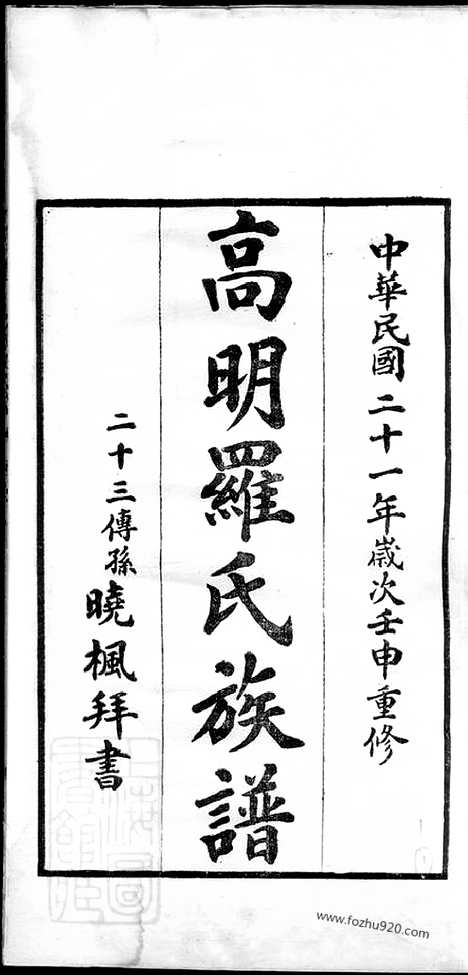 中華民國二十一年歲次壬申重修
高明羅氏族譜
二十三傳孫曉楓拜書
www.fozhu920.com